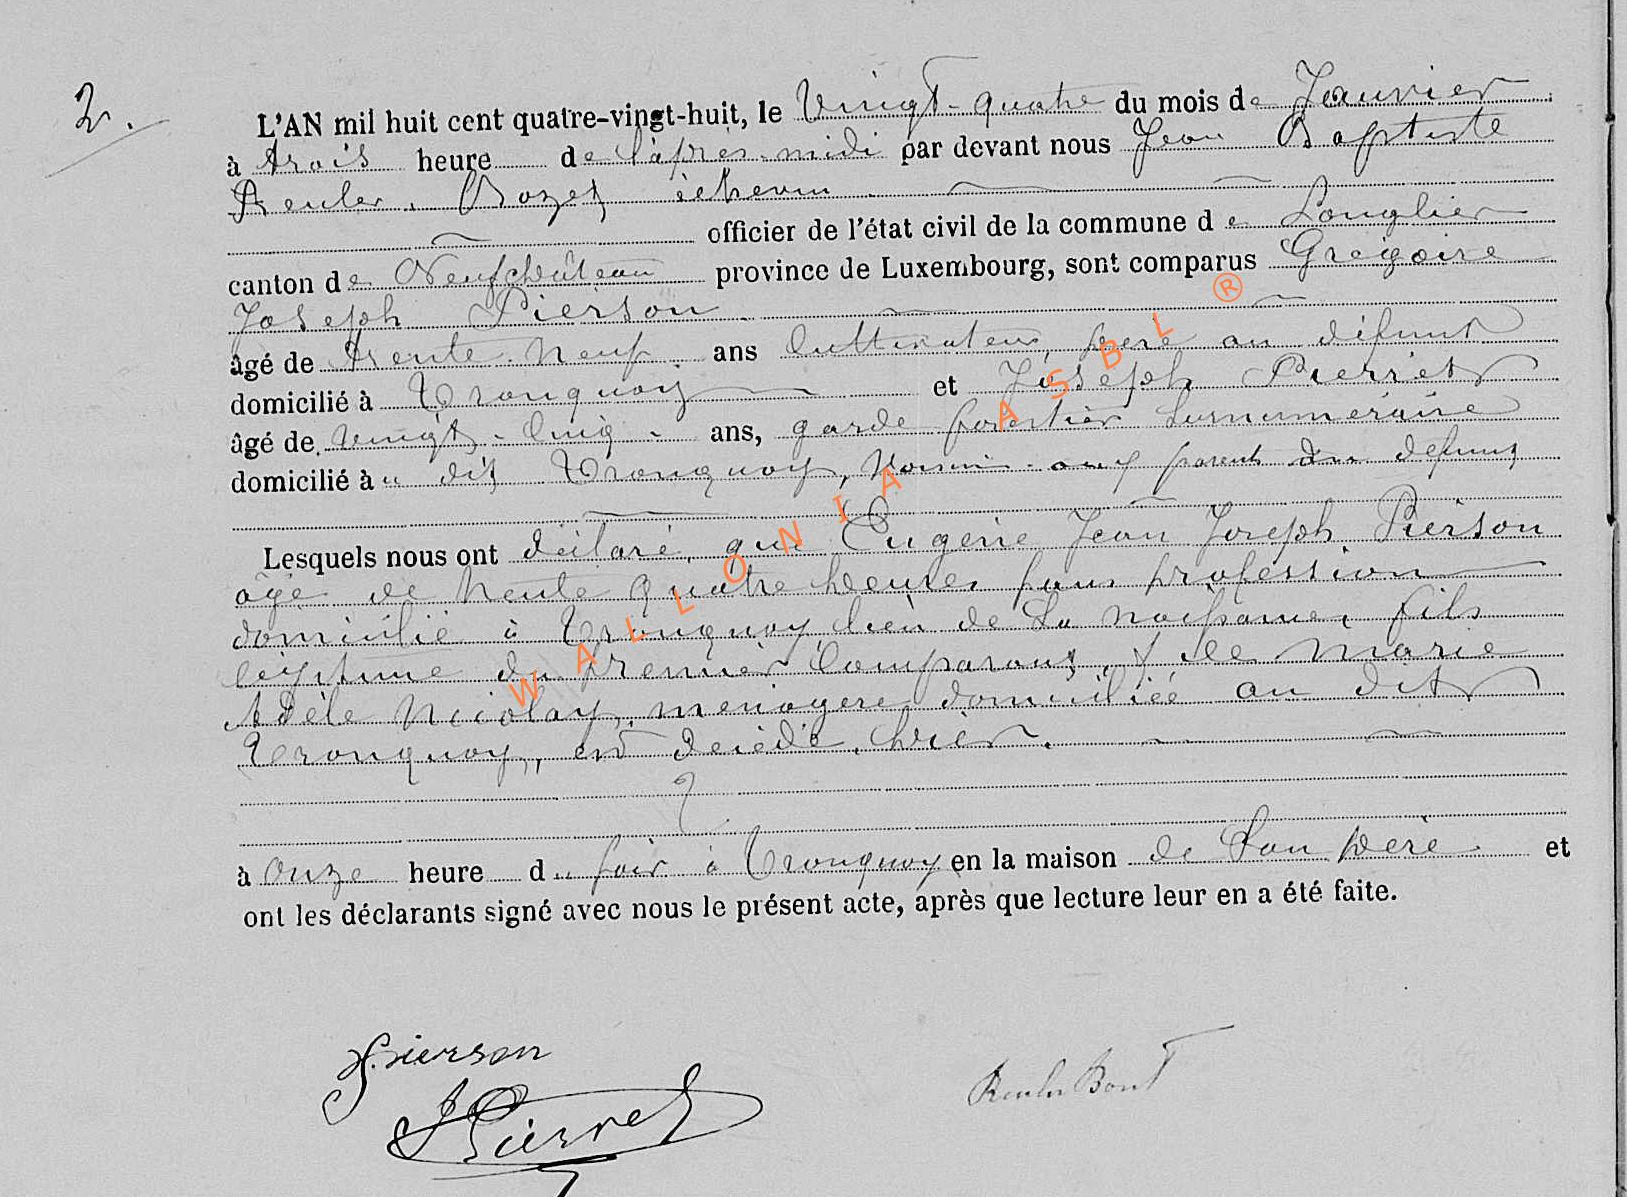 2.
L'AN mil huit cent quatre-vingt-huit, le Vingt-quatre du mois de Janvier
à trois heure de l'après-midi par devant nous Jean Baptiste
Reuler Bozet échevin
officier de l'état civil de la commune de Longlier
canton de Neufchâteau province de Luxembourg, sont comparus Grégoire
Joseph Pierson
âgé de trente-neuf ans cultivateur, père au défunt
domicilié à Tronquoy et Joseph Pierret
âgé de vingt-cinq ans, garde forestier surnuméraire
domicilié à u dit Tronquoy, voisin parent du défunt
Lesquels nous ont déclaré, que Eugène Jean Joseph Pierson
âgé de trente quatre heures sans profession
domicilié à Tronquoy lieu de sa naissance, fils
légitime du premier comparant, & de Marie
Adèle Nicolay, ménagère domiciliée au dit
Tronquoy, est décédé hier.
à onze heure du soir à Tronquoy en la maison de son père et
ont les déclarants signé avec nous le présent acte, après que lecture leur en a été faite.
Pierson
J Pierret
WALLONIA ASBL ®